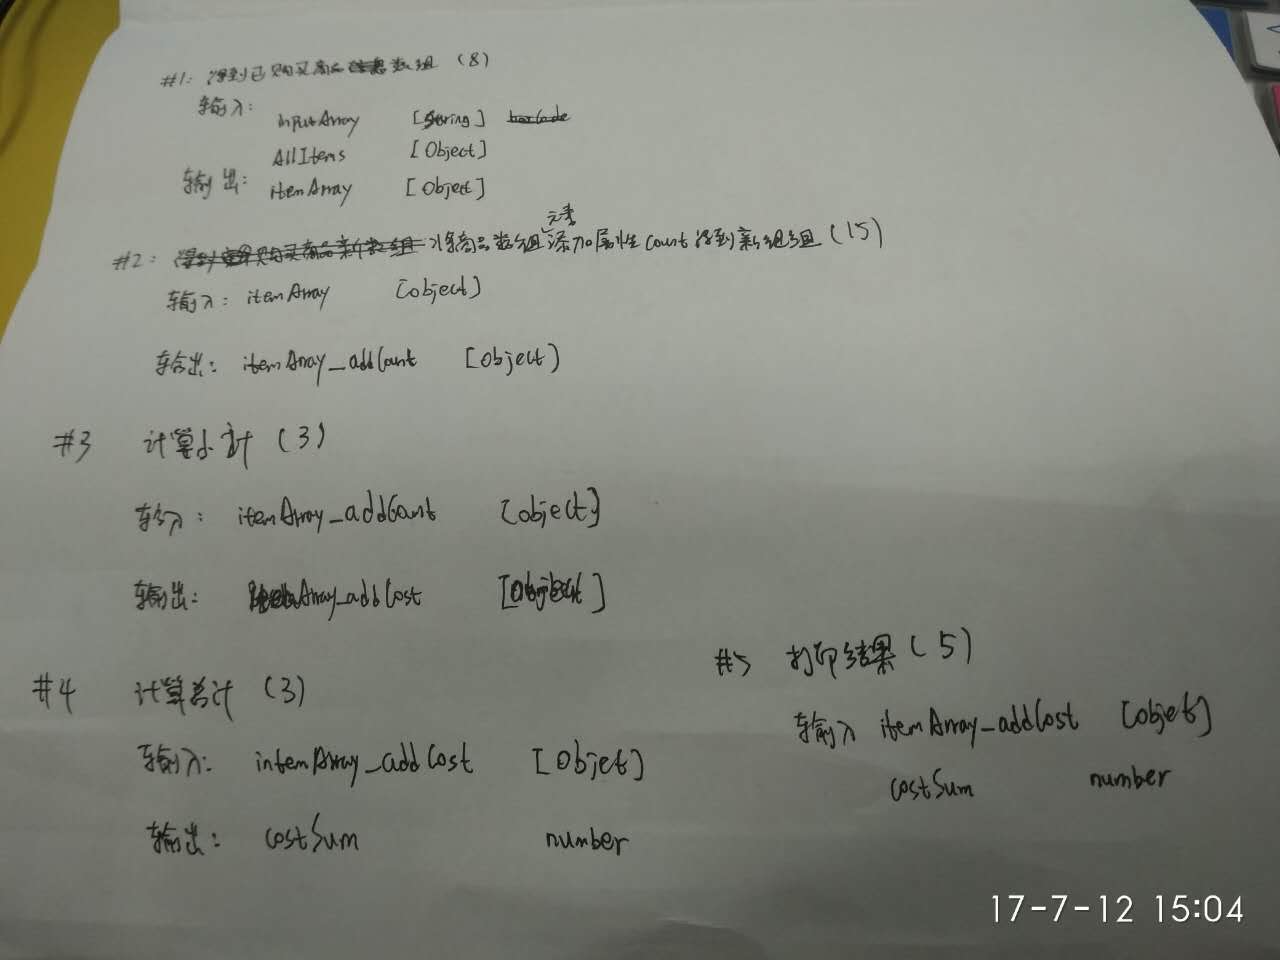 #1: 得到已购买商品数组 (8)
输入:
inputArray [String] barCode
AllItems [Object]
输出: itemArray [Object]
#2: 得到购买商品新数组 将商品数组元素添加属性count得到新组组 (15)
输入: itemArray [object]
输出: itemArray_addCount [Object]
#3 计算小计 (3)
输入: itemArray_addCount [object]
输出: Array_addCost [Object]
#4 计算总计 (3)
输入: intemArray_addCost [Objet]
输出: costSum number
#5 打印结果 (5)
输入 itemArray_addCost [objet]
costSum number
17-7-12 15:04